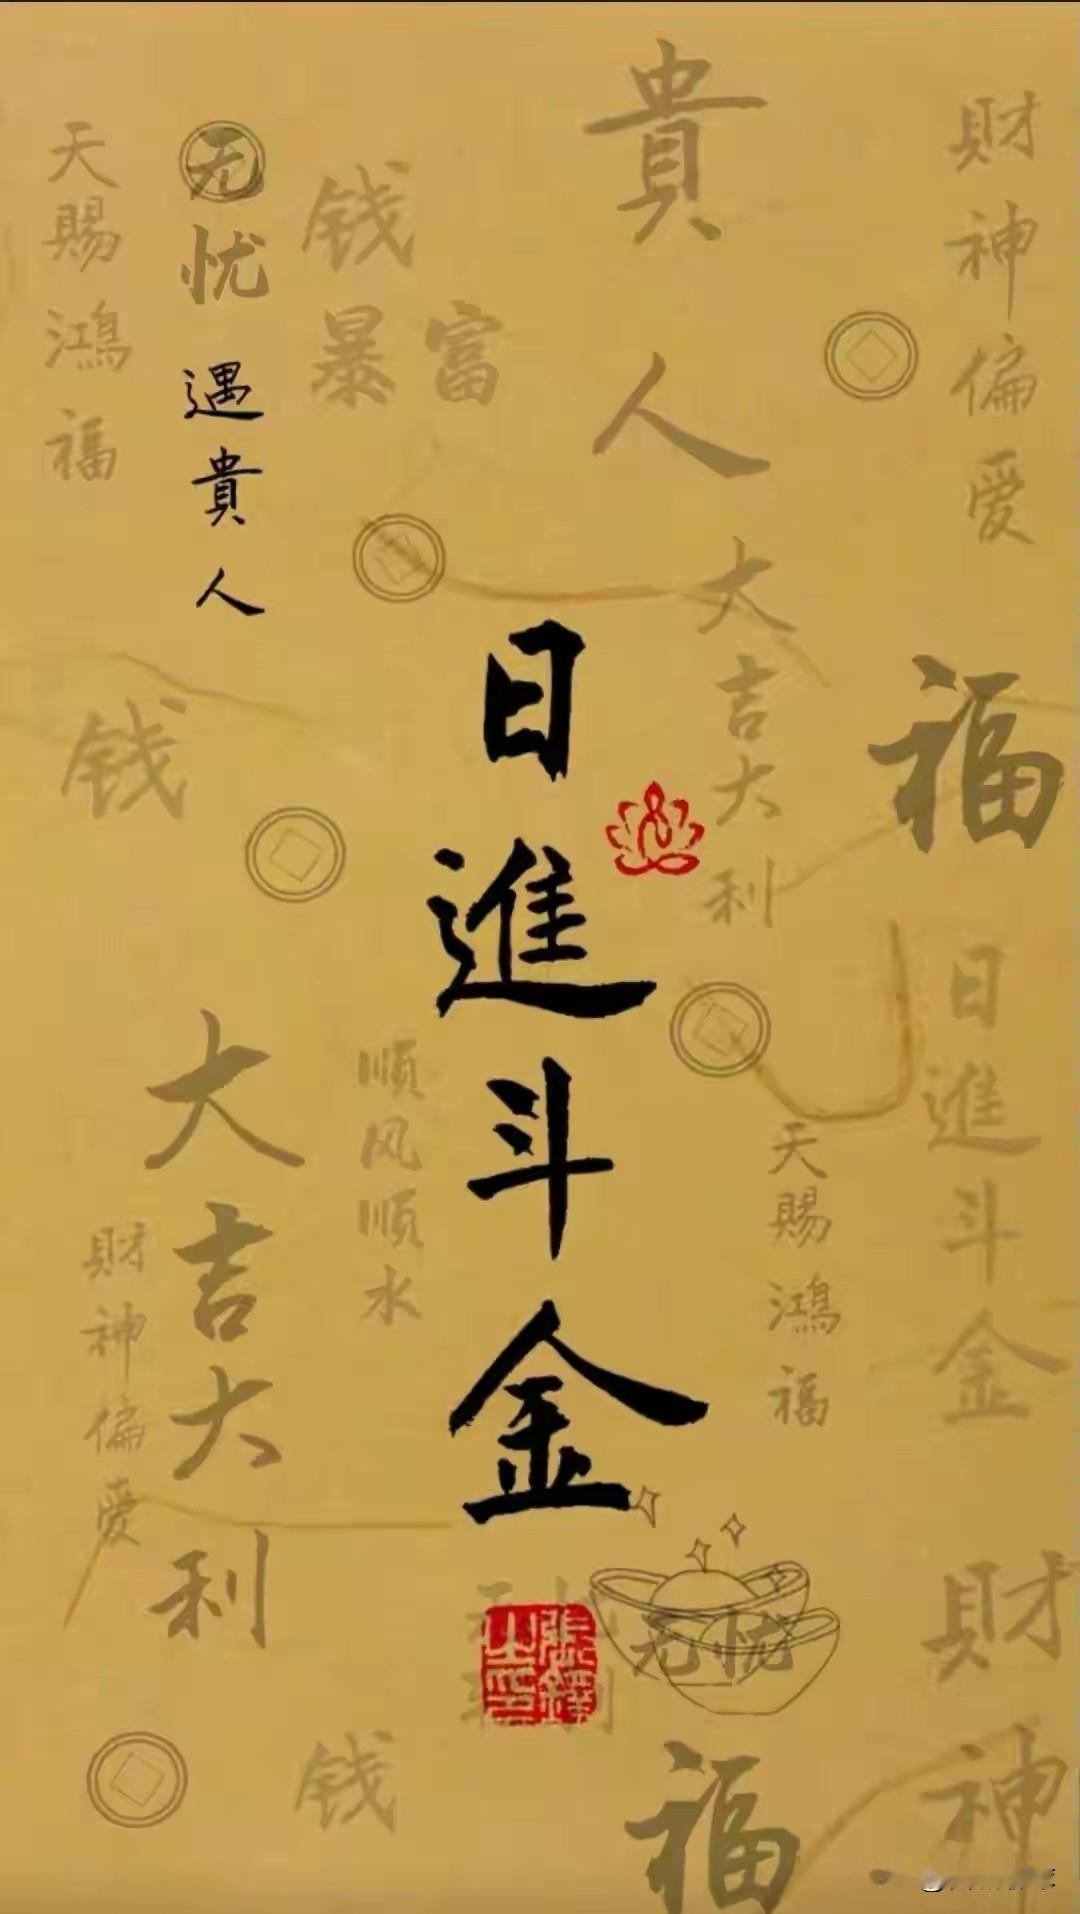 財神偏愛
貴人
富
钱
暴
无忧
遇貴人
天賜鴻福
大吉大利
福
钱
日進斗金
日進斗金
顺风顺水
大吉大利
天賜鴻福
財神偏愛
无忧
財神
福
钱